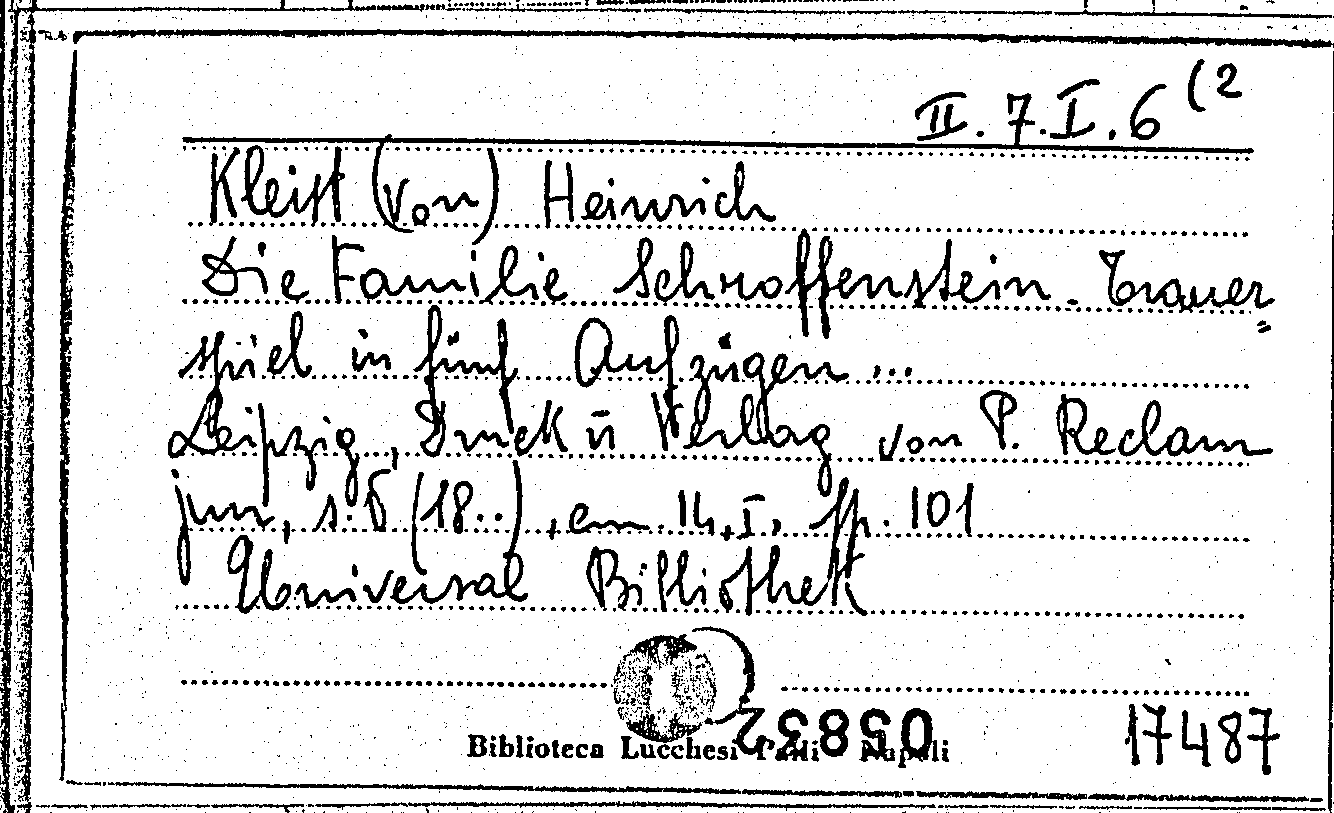 II. 7. I. 6 (2
Kleist (von) Heinrich
Die Familie Schroffenstein. Trauer=
spiel in fünf Aufzügen...
Leipzig, Druck ū Verlag von P. Reclam
jun, s. d (18..), cm. 14, I, pp. 101
Universal Bibliothek
05832
Biblioteca Lucchesi Palli Napoli
17487